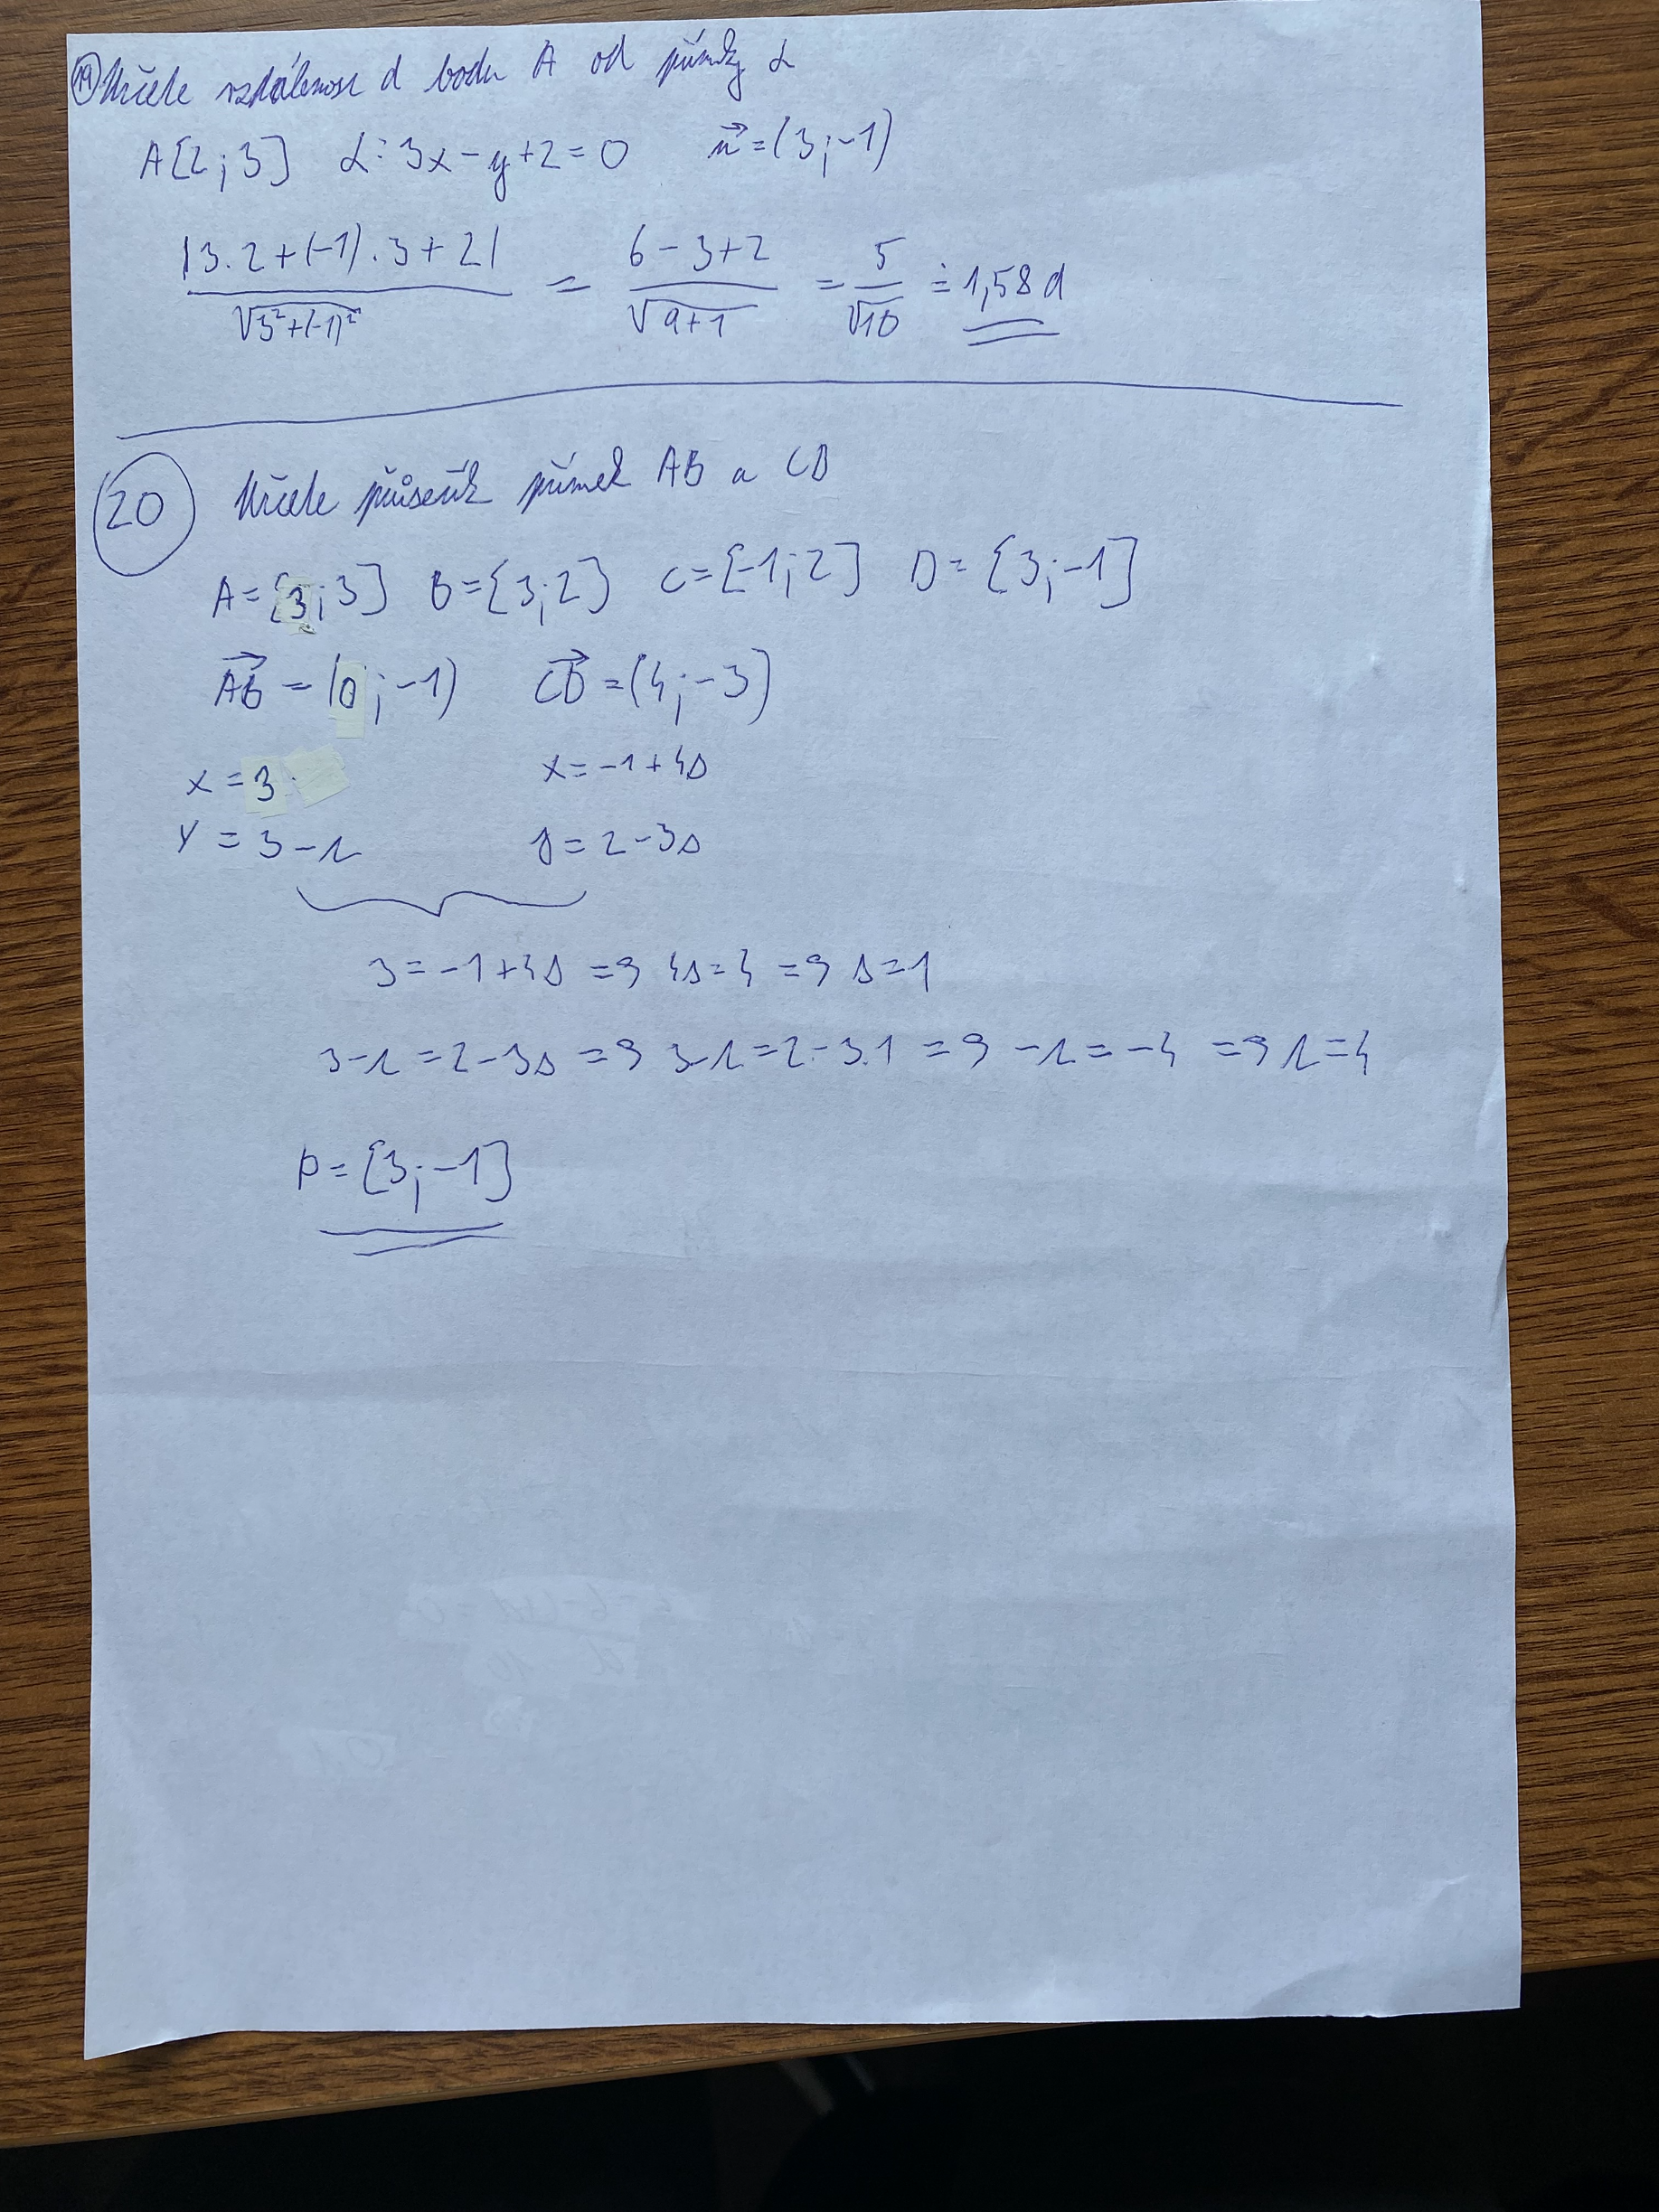 19 Určete vzdálenost d bodu A od přímky α
A[2;3] α: 3x-y+2=0 n⃗=(3;-1)
|3.2+(-1).3+2| / √3²+(-1)² = 6-3+2 / √9+1 = 5 / √10 ≐ 1,58 d
20 Určete průsečík přímek AB a CD
A=[3;3] B=[3;2] C=[-1;2] D=[3;-1]
AB⃗=(0;-1) CD⃗=(4;-3)
x=3 x=-1+4s
y=3-r y=2-3s
3=-1+4s => 4s=4 => s=1
3-r=2-3s => 3-r=2-3.1 => -r=-4 => r=4
P=[3;-1]